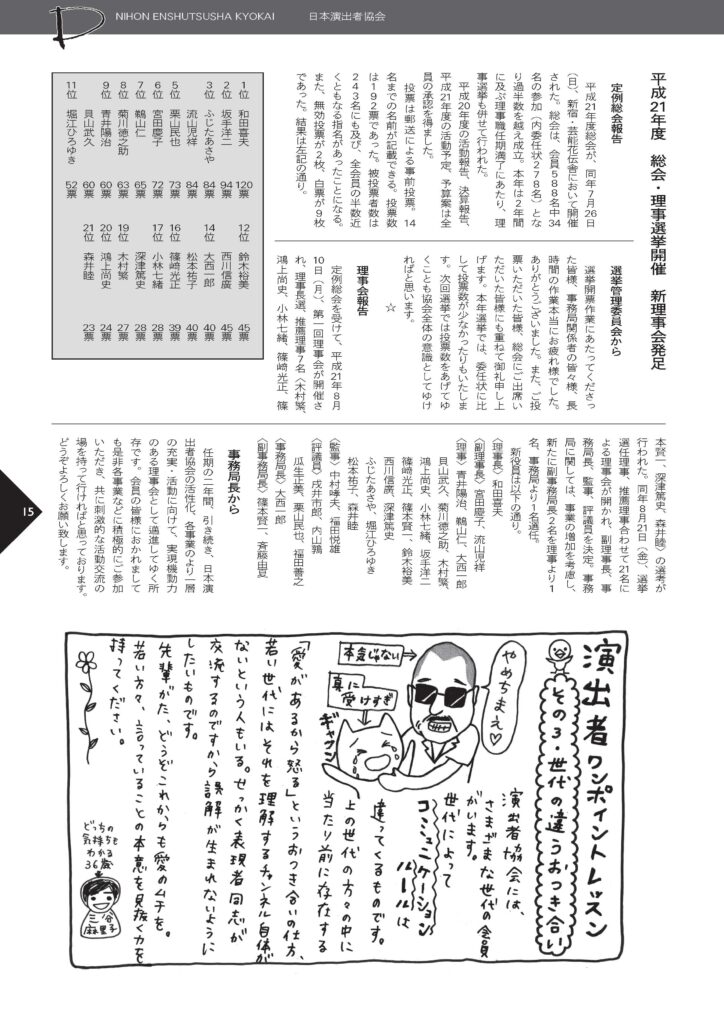 NIHON ENSHUTSUSHA KYOKAI　日本演出者協会
平成21年度　総会・理事選挙開催　新理事会発足
定例総会報告
平成21年度総会が、同年7月26日
(日)、新宿・芸能花伝舎において開催
された。総会は、会員588名中34
名の参加（内委任状278名）とな
り過半数を越え成立。本年は2年間
に及ぶ理事職任期満了にあたり、理
事選挙も併せて行われた。
平成20年度の活動報告、決算報告、
平成21年度の活動予定、予算案は全
員の承認を得ました。
投票は郵送による事前投票。14
名までの名前が記載できる。投票数
は192票であった。被投票者数は
243名にも及び、全会員の半数近
くともなる指名があったことになる。
また、無効投票が2枚、白票が9枚
であった。結果は左記の通り。
1位　和田喜夫　120票
2位　坂手洋二　94票
3位　ふじたあさや　84票
流山児祥　84票
5位　栗山民也　73票
6位　宮田慶子　72票
7位　鵜山仁　65票
8位　菊川徳之助　63票
9位　青井陽治　60票
貝山武久　60票
11位　堀江ひろゆき　52票
12位　鈴木裕美　45票
西川信廣　45票
14位　大西一郎　40票
松本祐子　40票
16位　篠崎光正　39票
17位　小林七緒　28票
深津篤史　28票
19位　木村繁　27票
20位　鴻上尚史　24票
21位　森井睦　23票
選挙管理委員会から
選挙開票作業にあたってくださっ
た皆様、事務局関係者の皆々様、長
時間の作業本当にお疲れ様でした。
ありがとうございました。また、ご投
票いただいた皆様、総会にご出席い
ただいた皆様にも重ねて御礼申し上
げます。本年選挙では、委任状に比
して投票数が少なかったりもいたしま
す。次回選挙では投票数をあげてゆ
くことも協会全体の意識としてゆけ
ればと思います。
☆
理事会報告
定例総会を受けて、平成21年8月
10日（月）、第一回理事会が開催さ
れ、理事長選、推薦理事7名（木村繁、
鴻上尚史、小林七緒、篠崎光正、篠
本賢一、深津篤史、森井睦）の選考が
行われた。同年8月21日（金）、選挙
選任理事、推薦理事合わせて21名に
よる理事会が開かれ、副理事長、事
務局長、監事、評議員を決定。事務
局に関しては、事業の増加を考慮し、
新たに副事務局長2名を理事より1
名、事務局より1名選任。
新役員は以下の通り。
〈理事長〉和田喜夫
〈副理事長〉宮田慶子、流山児祥
〈理事〉青井陽治、鵜山仁、大西一郎
貝山武久、菊川徳之助、木村繁、
鴻上尚史、小林七緒、坂手洋二
篠崎光正、篠本賢一、鈴木裕美
西川信廣、深津篤史
ふじたあさや、堀江ひろゆき
松本祐子、森井睦
〈監事〉中村哮夫、福田悦雄
〈評議員〉戌井市郎、内山鶉
瓜生正美、栗山民也、福田善之
〈事務局長〉大西一郎
〈副事務局長〉篠本賢一、斉藤由夏
事務局長から
任期の二年間、引き続き、日本演
出者協会の活性化、各事業のより一層
の充実・活動に向けて、実現機動力
のある理事会として邁進してゆく所
存です。会員の皆様におかれまして
も是非各事業などに積極的にご参加
いただき、共に刺激的な活動交流の
場を持って行ければと思っております。
どうぞよろしくお願い致します。
15
演出者ワンポイントレッスン
その3・世代の違うおつき合い
やめちまえ♡
本気じゃない
真に受けすぎ
ギャフン
演出者協会には、
さまざまな世代の会員
がいます。
世代によって
コミュニケーション
ルールは
違ってくるものです。
上の世代の方々の中に
当たり前に存在する
「愛があるから怒る」というおつき合いの仕方、
若い世代にはそれを理解するチャンネル自体が
ないという人もいる。せっかく表現者同志が
交流するのですから誤解が生まれないように
したいものです。
先輩がた、どうぞこれからも愛のムチを。
若い方々、言っていることの本意を見抜く力を
持ってください。
どっちの
気持ちも
わかる
36歳
三谷
麻里子